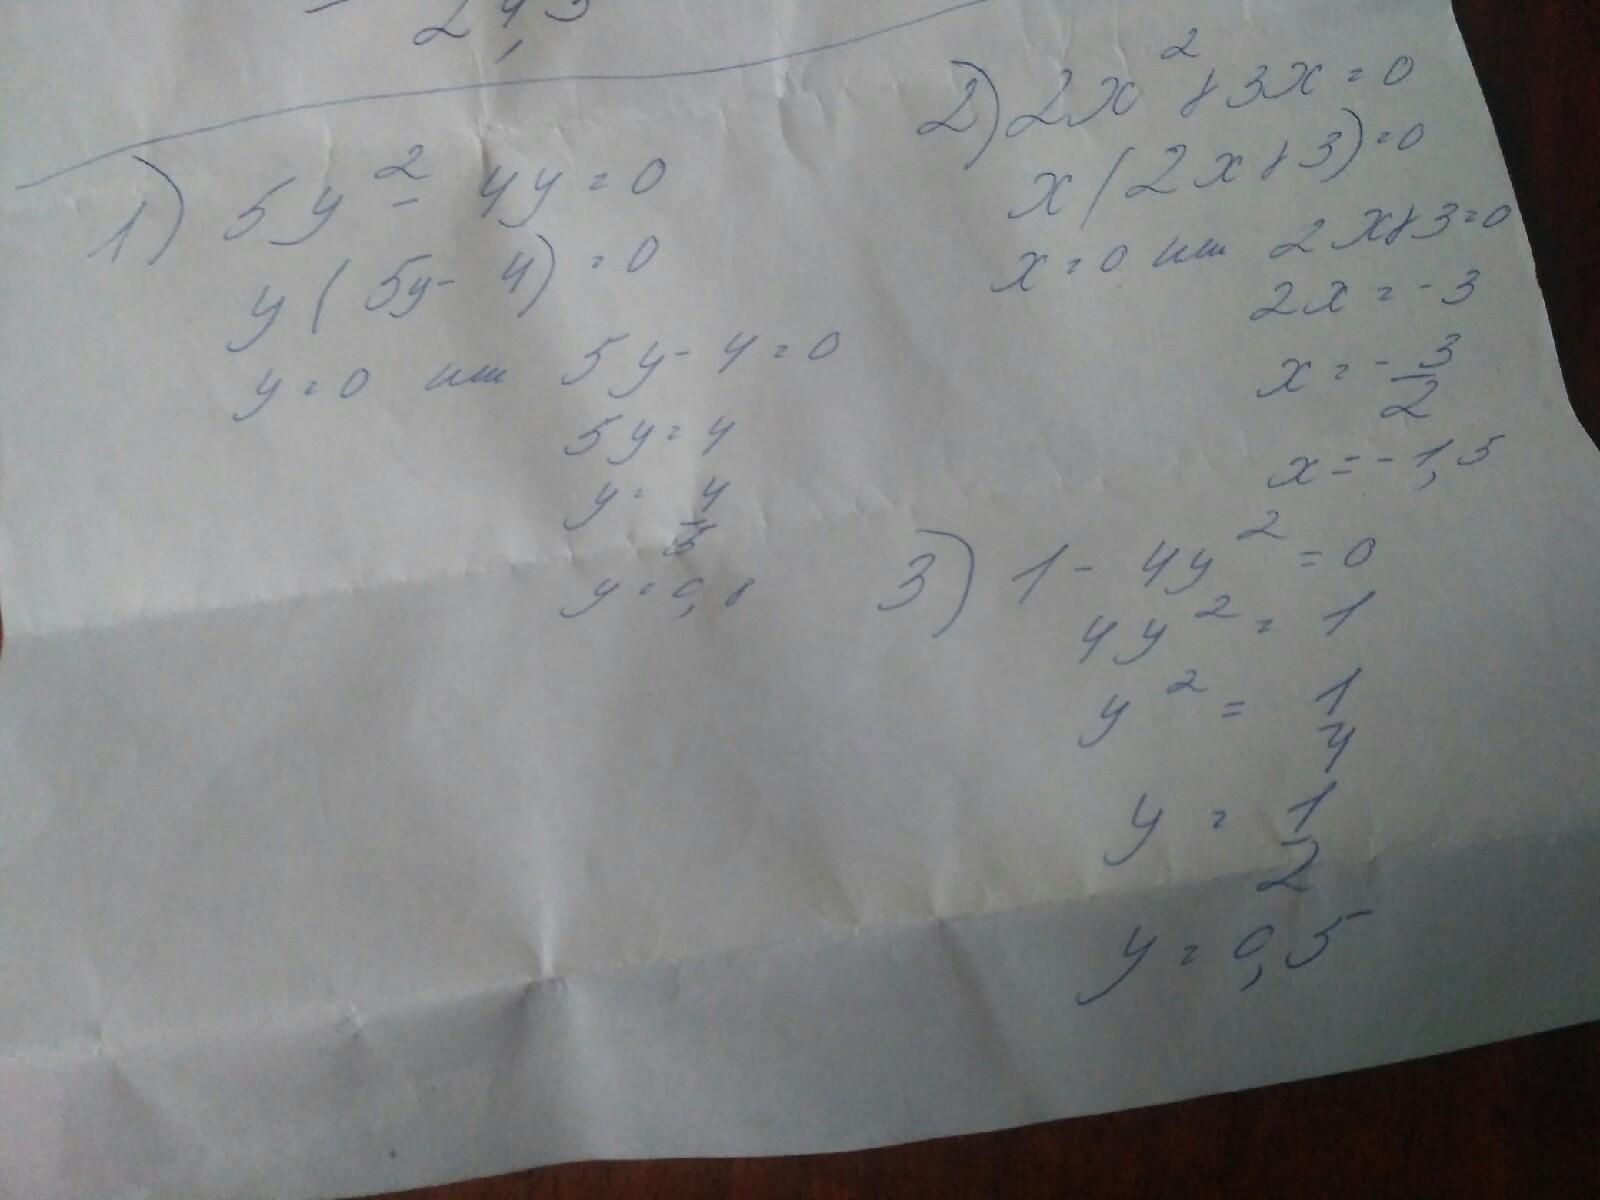 1) 5y² - 4y = 0
y(5y - 4) = 0
y = 0 или 5y - 4 = 0
5y = 4
y = 4/5
y = 0,8
2) 2x² + 3x = 0
x(2x + 3) = 0
x = 0 или 2x + 3 = 0
2x = -3
x = -3/2
x = -1,5
3) 1 - 4y² = 0
4y² = 1
y² = 1/4
y = 1/2
y = 0,5